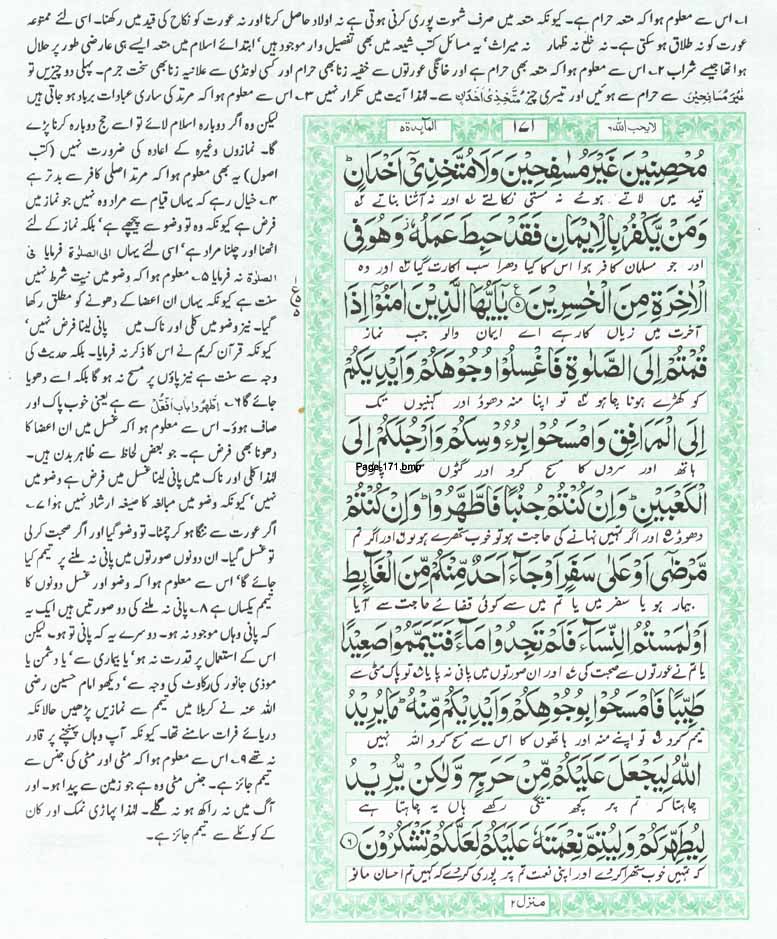 ۱؎ اس سے معلوم ہوا کہ متعہ حرام ہے۔ کیونکہ متعہ میں صرف شہوت پوری کرنی ہوتی ہے نہ اولاد حاصل کرنا اور نہ عورت کو نکاح کی قید میں رکھنا۔ اسی لئے ممتوعہ
عورت کو نہ طلاق ہو سکتی ہے۔ نہ خلع نہ ظہار نہ میراث' یہ مسائل کتب شیعہ میں بھی تفصیل وار موجود ہیں' ابتدائے اسلام میں متعہ ایسے ہی عارضی طور پر حلال
ہوا تھا جیسے شراب ۲؎ اس سے معلوم ہوا کہ متعہ بھی حرام ہے اور خانگی عورتوں سے خفیہ زنا بھی حرام اور کسی لونڈی سے علانیہ زنا بھی سخت جرم۔ پہلی دو چیزیں تو
غَیْرَ مُسَافِحِیْنَ سے حرام سے ہوئیں اور تیسری چیز مُتَّخِذِیْ اَخْدَانٍ سے۔ لہٰذا آیت میں تکرار نہیں ۳؎ اس سے معلوم ہوا کہ مرتد کی ساری عبادات برباد ہو جاتی ہیں
لیکن وہ اگر دوبارہ اسلام لائے تو اسے حج دوبارہ کرنا پڑے
گا۔ نمازوں وغیرہ کے اعادہ کی ضرورت نہیں (کتب
اصول) یہ بھی معلوم ہوا کہ مرتد اصلی کافر سے بدتر ہے
۴؎ خیال رہے کہ یہاں قیام سے مراد وہ نہیں جو نماز میں
فرض ہے کیونکہ وہ تو وضو سے پیچھے ہے' بلکہ نماز کے لئے
اٹھنا اور چلنا مراد ہے' اسی لئے یہاں الی الصلوٰۃ فرمایا فی
الصلوٰۃ نہ فرمایا ۵؎ معلوم ہوا کہ وضو میں نیت شرط نہیں
سنت ہے کیونکہ یہاں ان اعضا کے دھونے کو مطلق رکھا
گیا۔ نیز وضو میں کلی اور ناک میں پانی لینا فرض نہیں'
کیونکہ قرآن کریم نے اس کا ذکر نہ فرمایا۔ بلکہ حدیث کی
وجہ سے سنت ہے نیز پاؤں پر مسح نہ ہو گا بلکہ اسے دھویا
جائے گا ۶؎ اِطَّهَّرُوْا باب اِفَّعُّلْ سے ہے یعنی خوب پاک اور
صاف ہوؤ۔ اس سے معلوم ہوا کہ غسل میں ان اعضا کا
دھونا بھی فرض ہے۔ جو بعض لحاظ سے ظاہر بدن ہیں۔
لہٰذا کلی اور ناک میں پانی لینا غسل میں فرض ہے وضو میں
نہیں' کیونکہ وضو میں مبالغہ کا صیغہ ارشاد نہیں ہوا ۷؎
اگر عورت سے ننگا ہو کر چمٹا۔ تو وضو گیا اور اگر صحبت کر لی
تو غسل گیا۔ ان دونوں صورتوں میں پانی نہ ملنے پر تیمم کیا
جائے گا' اس سے معلوم ہوا کہ وضو اور غسل دونوں کا
تیمم یکساں ہے ۸؎ پانی نہ ملنے کی دو صورتیں ہیں ایک یہ
کہ پانی وہاں موجود نہ ہو۔ دوسرے یہ کہ پانی تو ہو۔ لیکن
اس کے استعمال پر قدرت نہ ہو' یا بیماری سے' یا دشمن یا
موذی جانور کی رکاوٹ کی وجہ سے' دیکھو امام حسین رضی
اللہ عنہ نے کربلا میں تیمم سے نمازیں پڑھیں حالانکہ
دریائے فرات سامنے تھا۔ کیونکہ آپ وہاں پہنچنے پر قادر
نہ تھے ۹؎ اس سے معلوم ہوا کہ مٹی اور مٹی کی جنس سے
تیمم جائز ہے۔ جنس مٹی وہ ہے جو زمین سے پیدا ہو۔ اور
آگ میں نہ راکھ ہو نہ گلے۔ لہٰذا پہاڑی نمک اور کان
کے کوئلے سے تیمم جائز ہے۔
لایحب اللہ ۶
۱۷۱
المآئدۃ ۵
مُحْصِنِیْنَ غَیْرَ مُسٰفِحِیْنَ وَلَا مُتَّخِذِیْۤ اَخْدَانٍ ؕ
قید میں لاتے ہوئے نہ مستی نکالتے اور نہ آشنا بناتے
وَمَنْ یَّكْفُرْ بِالْاِیْمَانِ فَقَدْ حَبِطَ عَمَلُهٗ ؗ وَهُوَ فِی
اور جو مسلمان کافر ہوا اس کا کیا دھرا سب اکارت گیا اور وہ
الْاٰخِرَةِ مِنَ الْخٰسِرِیْنَ ۝۵ یٰۤاَیُّهَا الَّذِیْنَ اٰمَنُوْۤا اِذَا
آخرت میں زیاں کار ہے اے ایمان والو جب نماز
قُمْتُمْ اِلَی الصَّلٰوةِ فَاغْسِلُوْا وُجُوْهَكُمْ وَاَیْدِیَكُمْ
کو کھڑے ہونا چاہو تو اپنا منہ دھوؤ اور کہنیوں تک
اِلَی الْمَرَافِقِ وَامْسَحُوْا بِرُءُوْسِكُمْ وَاَرْجُلَكُمْ اِلَی
ہاتھ اور سروں کا مسح کرو اور گٹوں تک پاؤں
Page-171.bmp
الْكَعْبَیْنِ ؕ وَاِنْ كُنْتُمْ جُنُبًا فَاطَّهَّرُوْا ؕ وَاِنْ كُنْتُمْ
دھوؤ ۵؎ اور اگر تمہیں نہانے کی حاجت ہو تو خوب ستھرے ہو لو اور اگر تم
مَّرْضٰۤی اَوْ عَلٰی سَفَرٍ اَوْ جَآءَ اَحَدٌ مِّنْكُمْ مِّنَ الْغَآئِطِ
بیمار ہو یا سفر میں یا تم میں سے کوئی قضائے حاجت سے آیا
اَوْ لٰمَسْتُمُ النِّسَآءَ فَلَمْ تَجِدُوْا مَآءً فَتَیَمَّمُوْا صَعِیْدًا
یا تم نے عورتوں سے صحبت کی اور ان صورتوں میں پانی نہ پایا تو پاک مٹی سے
طَیِّبًا فَامْسَحُوْا بِوُجُوْهِكُمْ وَاَیْدِیْكُمْ مِّنْهُ ؕ مَا یُرِیْدُ
تیمم کرو تو اپنے منہ اور ہاتھوں کا اس سے مسح کرو اللہ نہیں
اللّٰهُ لِیَجْعَلَ عَلَیْكُمْ مِّنْ حَرَجٍ وَّلٰكِنْ یُّرِیْدُ
چاہتا کہ تم پر کچھ تنگی رکھے ہاں یہ چاہتا ہے
لِیُطَهِّرَكُمْ وَلِیُتِمَّ نِعْمَتَهٗ عَلَیْكُمْ لَعَلَّكُمْ تَشْكُرُوْنَ ۝۶
کہ تمہیں خوب ستھرا کر دے اور اپنی نعمت تم پر پوری کر دے کہ کہیں تم احسان مانو
منزل ۲